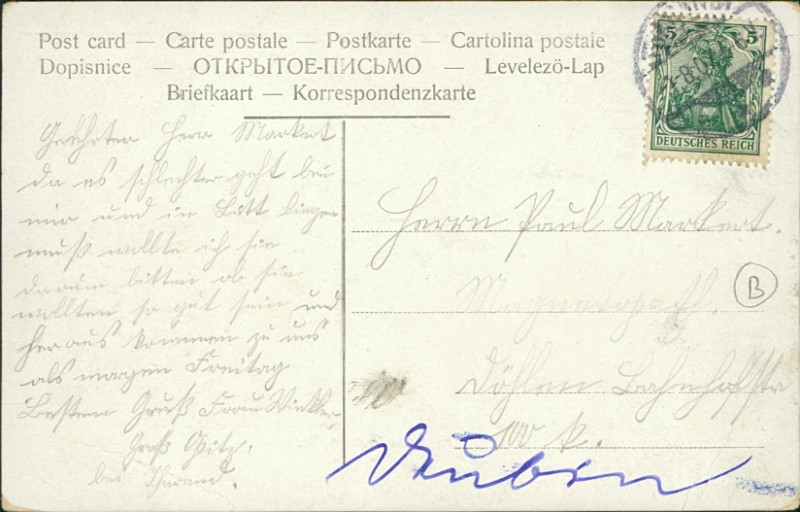 Post card — Carte postale — Postkarte — Cartolina postale
Dopisnice — ОТКРЫТОЕ-ПИСЬМО — Levelezö-Lap
Briefkaart — Korrespondenzkarte
5 5
DEUTSCHES REICH
Geehrter Herr Markert
da es schlechter geht bei
mir und in Bett liegen
muß wollte ich sie
darum bitten ob sie
wollten so gut sein und
heraus kommen zu uns
als morgen Freitag
Besten Gruß Frau Winkler
Groß Opitz.
bei Tharand.
Herrn Paul Markert.
Magnetopath.
Döhlen Bahnhofstr
100 k.
Deuben
B